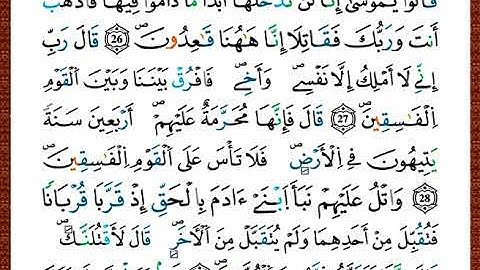 قَالُوا يَٰمُوسَىٰ إِنَّا لَن نَّدْخُلَهَا أَبَدًا مَّا دَامُوا فِيهَا فَاذْهَبْ
أَنتَ وَرَبُّكَ فَقَاتِلَا إِنَّا هَٰهُنَا قَٰعِدُونَ (26) قَالَ رَبِّ
إِنِّي لَا أَمْلِكُ إِلَّا نَفْسِي وَأَخِي فَافْرُقْ بَيْنَنَا وَبَيْنَ الْقَوْمِ
الْفَٰسِقِينَ (27) قَالَ فَإِنَّهَا مُحَرَّمَةٌ عَلَيْهِمْ أَرْبَعِينَ سَنَةً
يَتِيهُونَ فِي الْأَرْضِ فَلَا تَأْسَ عَلَى الْقَوْمِ الْفَٰسِقِينَ
(28) وَاتْلُ عَلَيْهِمْ نَبَأَ ابْنَيْ ءَادَمَ بِالْحَقِّ إِذْ قَرَّبَا قُرْبَانًا
فَتُقُبِّلَ مِنْ أَحَدِهِمَا وَلَمْ يُتَقَبَّلْ مِنَ الْأَخَرِ قَالَ لَأَقْتُلَنَّكَ